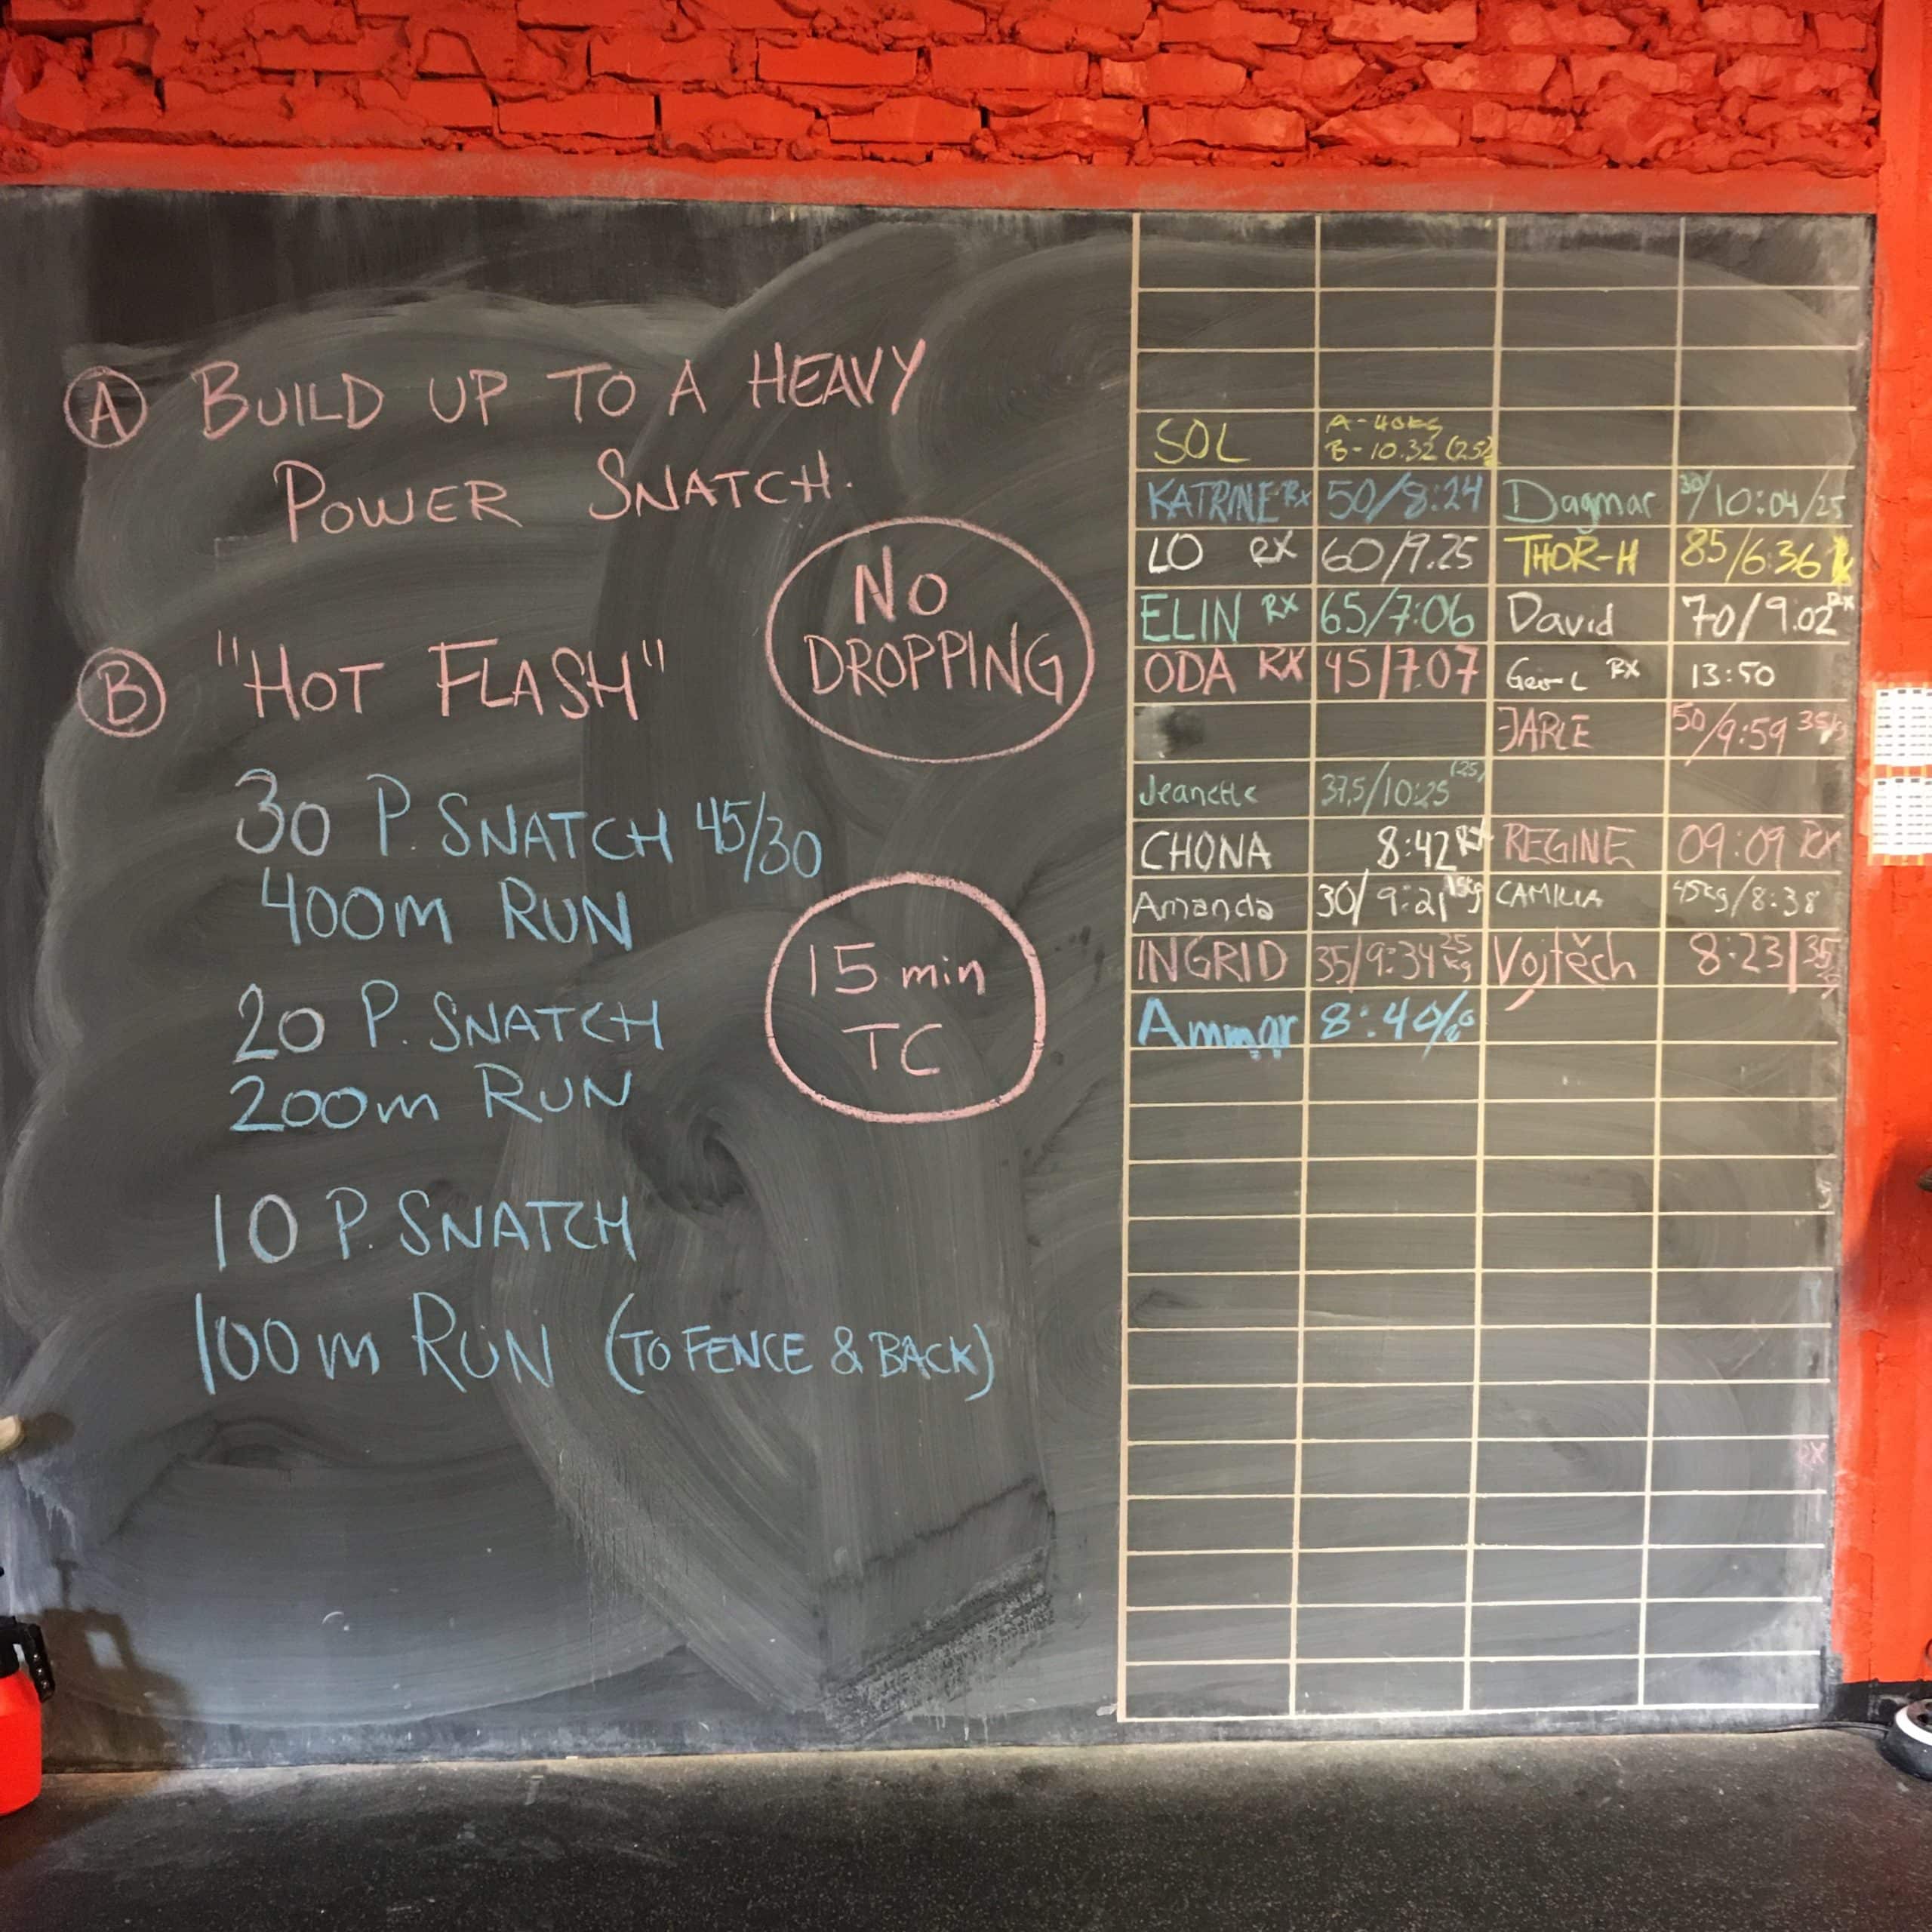 Ⓐ BUILD UP TO A HEAVY
POWER SNATCH.
NO
DROPPING
Ⓑ "HOT FLASH"
30 P. SNATCH 45/30
400m RUN
15 min
TC
20 P. SNATCH
200m RUN
10 P. SNATCH
100m RUN (TO FENCE & BACK)
SOL A-40kg
B-10.32 (25)
KATRINE RX 50/8:24 Dagmar 30/10:04/25
LO RX 60/9.25 THOR-H 85/6:36
ELIN RX 65/7:06 David 70/9.02 RX
ODA RX 45/7.07 RX 13:50
JARLE 50/9:59 35kg
Jeanette 37,5/10:25 (25)
CHONA 8:42 RX REGINE 09:09 RX
Amanda 30/9:21 15kg CAMILLA 45kg/8:38
INGRID 35/9:34 25kg Vojtěch 8:23/35
Ammar 8:40/
RX